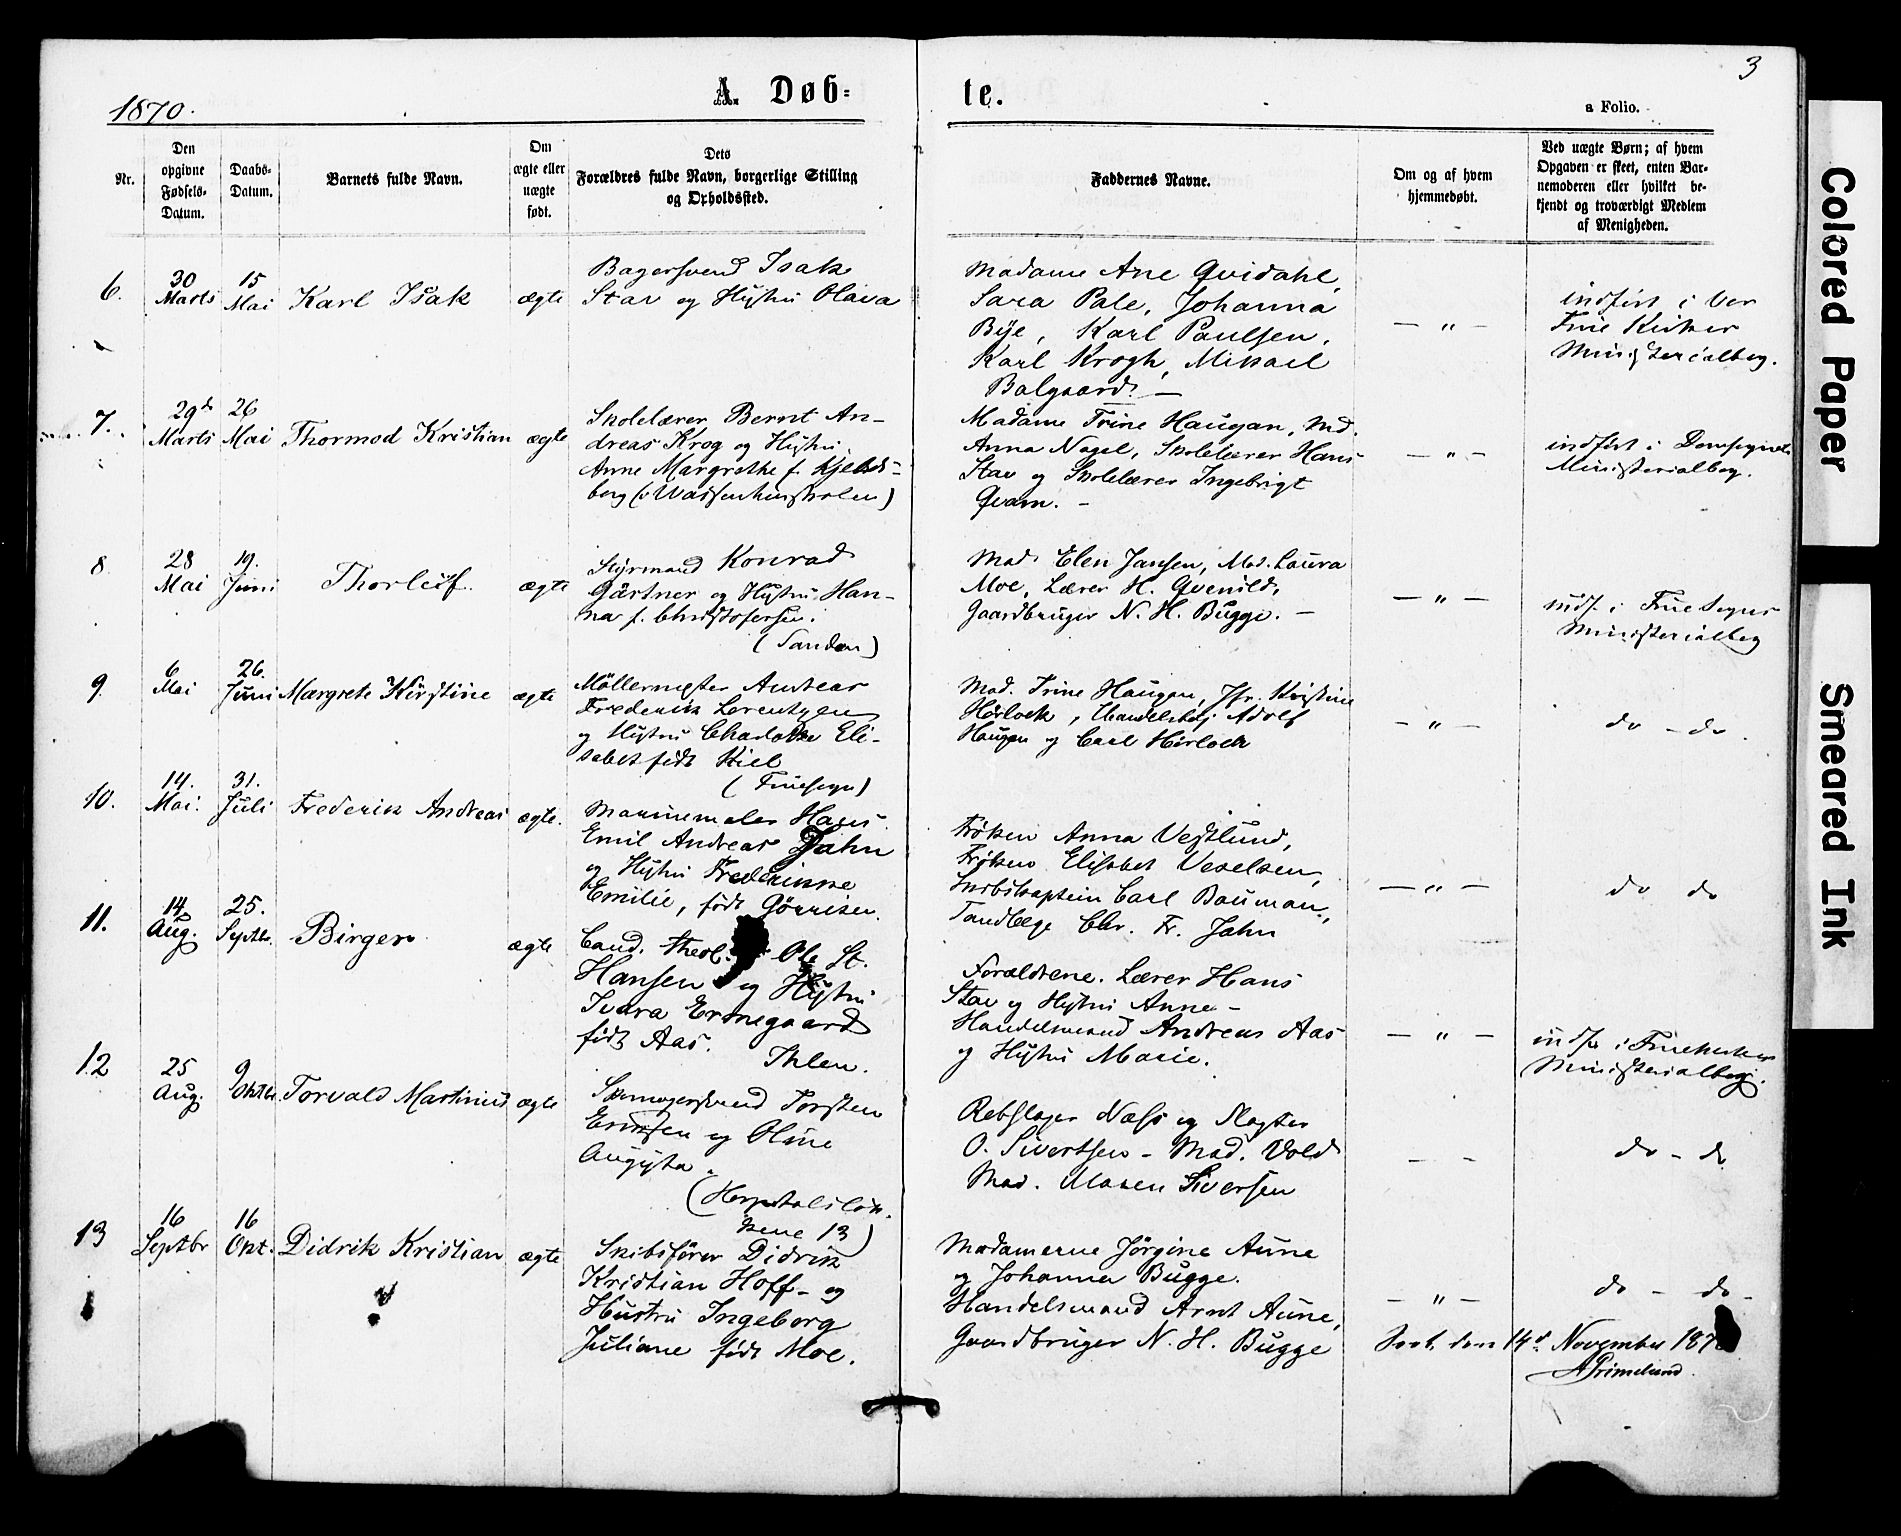 3
1870.
A Døb=
te.
a Folio.
Nr.
Den
opgivne
Fødsels-
Datum.
Daabs-
Datum.
Barnets fulde Navn.
Om
ægte eller
uægte
født.
Dets
Forældres fulde Navn, borgerlige Stilling
og Opholdssted.
Faddernes Navne.
Om og af hvem
hjemmedøbt.
Ved uægte Børn; af hvem
Opgaven er skeet, enten Bar-
nemoderen eller hvilket be-
kjendt og troværdigt Medlem
af Menigheden.
6.
30
Marts
15
Mai
Karl Isak
ægte
Bagersvend Isak
Stav og Hustru Olava
Madame Ane Qvidahl,
Sara Pale, Johanna
Bye, Karl Paulsen,
Karl Krogh, Mikael
Balgaard. —
— " —
indført i Vor
Frue Kirkes
Ministerialbog.
7.
29de
Marts
26
Mai
Thormod Kristian
ægte
Skolelærer Bernt An-
dreas Krog og Hustru
Anne Margrethe f. Kjelds-
berg (Waisenhusskolen)
Madame Trine Haugan, Md.
Anna Nagel, Skolelærer Hans
Stav og Skolelærer Ingebrigt
Qvam. -
— " —
indført i Domsognets
Ministerialbog.
8
28
Mai
19.
Juni
Thorleif.
ægte
Styrmand Konrad
Gärtner og Hustru Han-
na f. Christofersen.
(Sanden)
Mad. Elen Jansen, Mad. Laura
Moe, Lærer H. Qvenild,
Gaardbruger N. H. Bugge. —
— " —
indf. i Frue Sogns
Ministerialbog
9.
6
Mai
26.
Juni
Margrete Kirstine
ægte
Møllermester Andreas
Frederik Lorentzen
og Hustru Charlotte Eli-
sabet født Kiel
(Fruesogn)
Mad. Trine Haugan, Jfr. Kristine
Hørlock, Handelsbetj Adolf
Haugan og Carl Hørlock
— " —
do - do.
10.
14.
Mai.
31.
Juli
Frederik Andreas
ægte.
Marinemaler Hans
Emil Andreas Jahn
og Hustru Frederikke
Emilie, født Gørrisen.
Frøken Anna Vestlund,
Frøken Elisabet Veselsen,
Skibskaptein Carl Bauman,
Tandlæge Chr. Fr. Jahn
— " —
do do
11.
14
Aug.
25.
Septbr.
Birger
ægte
Cand. theol. Ole St.
Hansen og Hustru
Ivara Ermegaard
født Aas.
Ihlen.
Forældrene. Lærer Hans
Stav og Hustru Anne -
Handelsmand Andreas Aas
og Hustru Marie.
— " —
indfø i Fruekirkens
Ministerialbog.
12
25
Aug.
9
Oktbr
Torvald Martinus
ægte
Skomagersvend Torsten
Eriksen og Oline
Augusta.
(Hospitalsløk-
kene 13)
Rebslager Næss og Slagter
O. Sivertsen - Mad. Vold
Mad. Maren Siversen
— —
do - do
13
16
Septbr
16
Okt.
Didrik Kristian
ægte
Skibsfører Didrik
Kristian Hoff - og
Hustru Ingeborg
Juliane født Moe.
Madamerne Jørgine Aune
og Johanna Bugge.
Handelsmand Arnt Aune,
Gaardbruger N. H. Bugge
— " —
do - do -
14de November 187
AGrimelund
Colored Paper
Smeared Ink